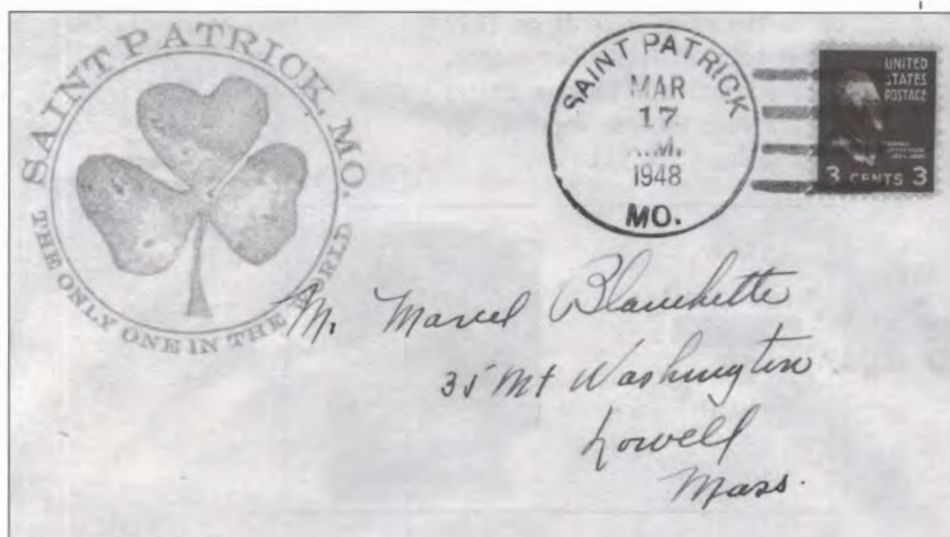 SAINT PATRICK, MO.
THE ONLY ONE IN THE WORLD
SAINT PATRICK
MAR
17
.M.
1948
MO.
UNITED
STATES
POSTAGE
3 CENTS 3
Mr Marcel Blanchette
35 Mt Washington
Lowell
Mass.